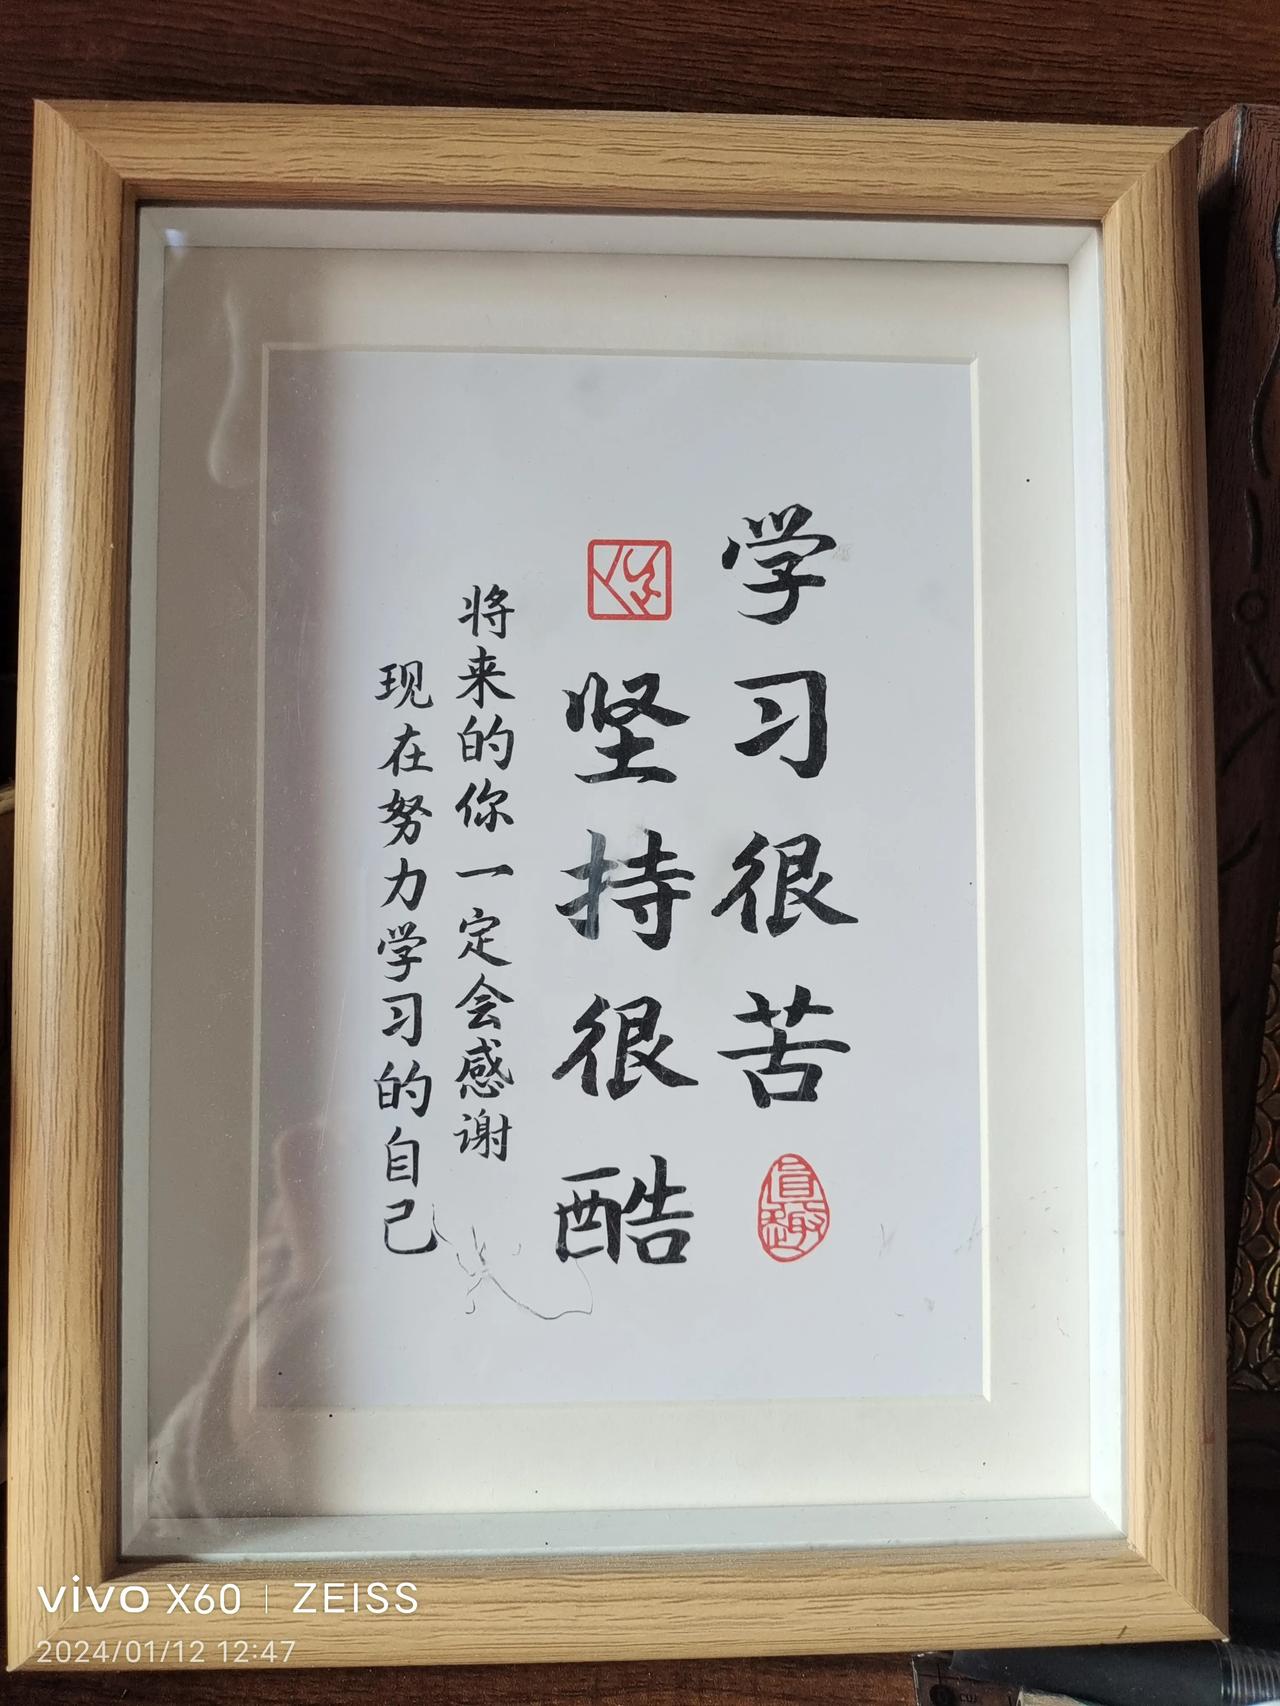 学习很苦
坚持很酷
将来的你一定会感谢
现在努力学习的自己
vivo X60 | ZEISS
2024/01/12 12:47